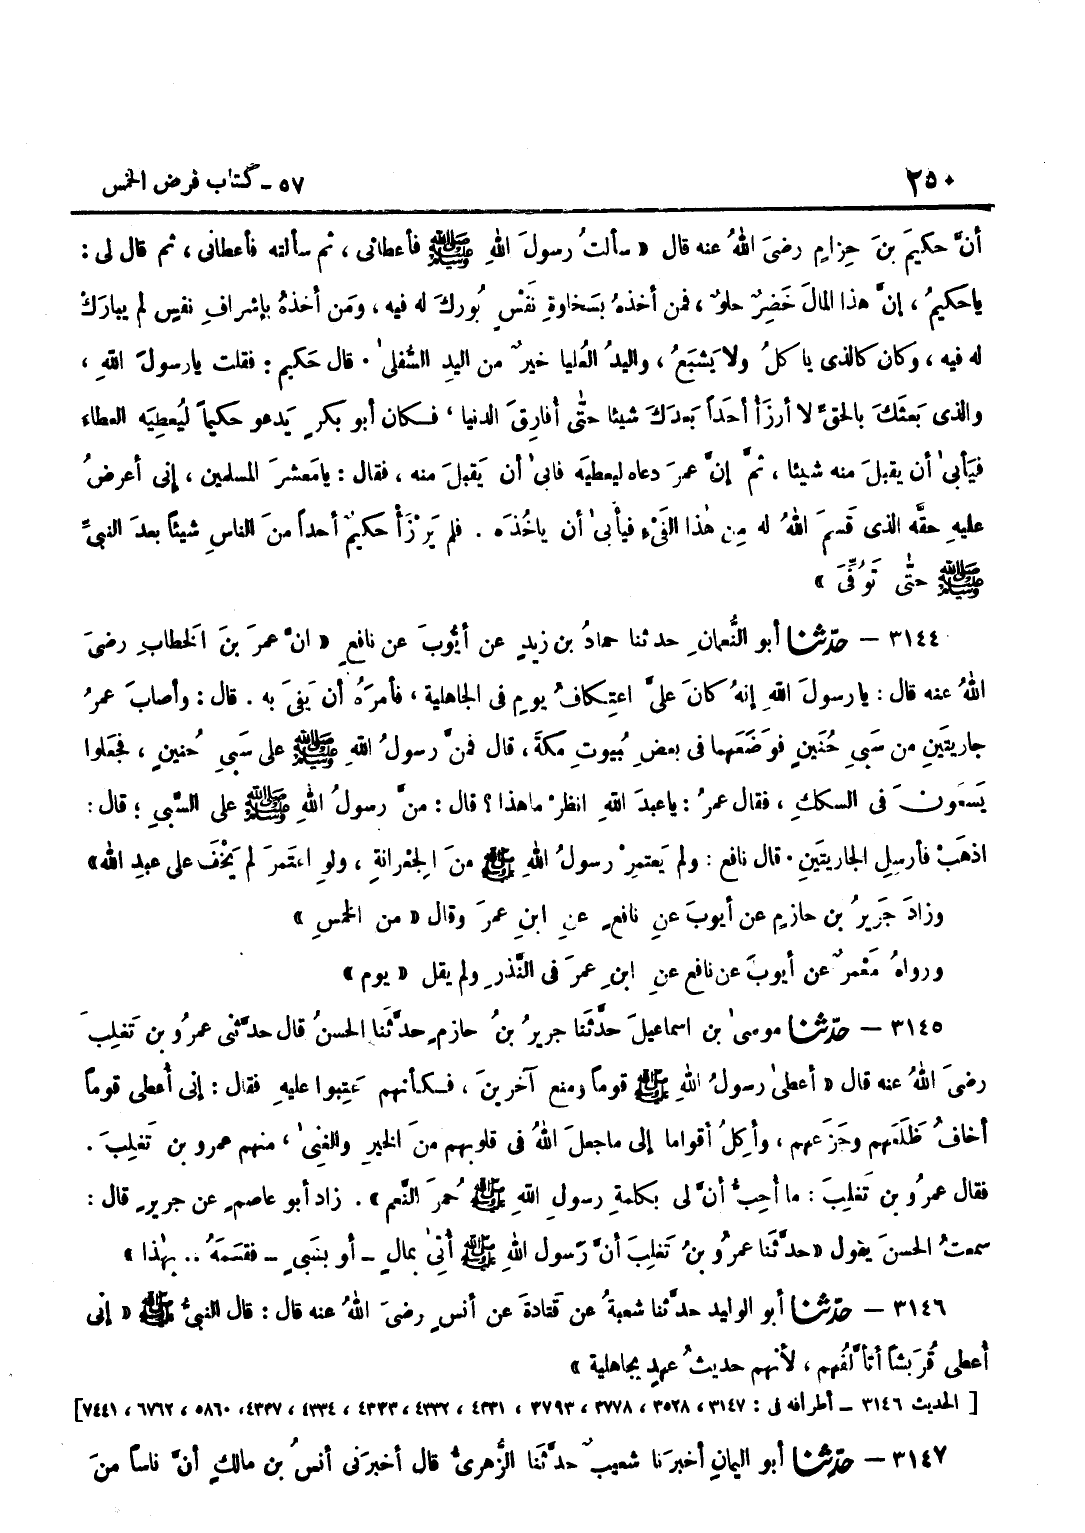 ٢٥٠ ٥٧ - كتاب فرض الخمس
أنَّ حكيمَ بنَ حِزامٍ رضىَ اللهُ عنه قال « سألتُ رسولَ اللهِ ﷺ فأعطانى ، ثم سألته فأعطانى ، ثم قال لى :
ياحكيمُ ، إنَّ هذا المالَ خَضِرٌ حلوٌ ، فمن أخذهُ بسَخاوةِ نَفْسٍ بُورِكَ له فيه ، ومَن أخذهُ بإشرافِ نفسٍ لم يبارَكْ
له فيه ، وكان كالذى يأكلُ ولا يَشبَعُ ، واليدُ العُليا خيرٌ من اليدِ السُّفلىٰ . قال حَكيم : فقلت يارسولَ اللهِ ،
والذى بَعثَكَ بالحقِّ لا أرزَأُ أحَداً بَعدَكَ شيئا حتّى أفارِقَ الدنيا ، فكان أبو بكرٍ يَدعو حكيماً ليُعطِيَه العطاء
فيَأبىٰ أن يقبلَ منه شيئا ، ثمَّ إنَّ عمرَ دعاه ليعطيَه فابىٰ أن يَقبلَ منه ، فقال : يامَعشرَ المسلمين ، إنى أعرِضُ
عليهِ حقَّه الذى قَسمَ اللهُ له مِن هٰذا الفَىْءِ فيأبىٰ أن ياخُذَه . فلم يَرْزَأْ حكيمٌ أحداً منَ الناسِ شيئاً بعدَ النبىِّ
ﷺ حتّى تَوُفِّىَ »
٣١٤٤ - حدّثنا أبو النُّعمانِ حدثنا حمادُ بن زيدٍ عن أيُّوبَ عن نافعٍ « انَّ عمرَ بنَ الخطابِ رضىَ
اللهُ عنه قال : يارسولَ اللهِ إنهُ كانَ علىَّ اعتِكافُ يومٍ فى الجاهلية ، فأمرَهُ أن يَفىَ به . قال : وأصابَ عمرُ
جاريتَينِ من سَبىِ حُنَينٍ فوَضَعَهما فى بعضِ بُيوتِ مكةَ ، قال فمنَّ رسولُ اللهِ ﷺ على سَبىِ حُنينٍ ، فجَعلوا
يَسعَونَ فى السككِ ، فقال عمرُ : ياعبدَ اللهِ انظرْ ماهذا ؟ قال : منَّ رسولُ اللهِ ﷺ على السَّبىِ ؛ قال :
اذهَبْ فأرسِلِ الجاريتَينِ . قال نافع : ولم يَعتمرْ رسولُ اللهِ ﷺ منَ الجِعْرانةِ ، ولوِ اعتمَرَ لم يَخْفَ على عبدِ الله »
وزادَ جَريرُ بن حازمٍ عن أيوبَ عن نافعٍ عنِ ابنِ عمرَ وقال « من الخمسِ »
ورواهُ مَعْمرٌ عن أيوبَ عن نافع عنِ ابنِ عمرَ فى النَّذرِ ولم يقل « يوم »
٣١٤٥ - حدّثنا موسىٰ بن اسماعيلَ حدَّثَنا جريرُ بنُ حازمٍ حدَّثَنا الحسنُ قال حدَّثنى عمرُو بن تَغلِبَ
رضىَ اللهُ عنه قال « أعطىٰ رسولُ اللهِ ﷺ قوماً ومنع آخرينَ ، فكأنهم عَتِبوا عليهِ فقال : إنى أُعطى قوماً
أخافُ ظَلَعَهم وجَزَعهم ، وأكِلُ أقواما إلى ماجعلَ اللهُ فى قلوبهم منَ الخيرِ والغِنىٰ ، منهم عمرو بن تَغلِبَ .
فقال عمرُو بن تَغلِبَ : ما أحِبُّ أنَّ لى بكلمةِ رسولِ اللهِ ﷺ حُمرَ النَّعم » . زاد أبو عاصمٍ عن جريرٍ قال :
سمعتُ الحسنَ يقول « حدَّثَنا عمرُو بنُ تَغلِبَ أنَّ رَسول اللهِ ﷺ أُتِىَ بمالٍ - أو بسَبىٍ - فقسَمَهُ .. بهٰذا »
٣١٤٦ - حدّثنا أبو الوليد حدَّثنا شعبةُ عن قَتادةَ عن أنسٍ رضىَ اللهُ عنه قال : قال النبىُّ ﷺ « إنى
أُعطى قُرَيشاً أتألَّفُهم ، لأنهم حديثُ عهدٍ بجاهلية »
[ الحديث ٣١٤٦ - أطرافه فى : ٣١٤٧ ، ٣٥٢٨ ، ٣٧٧٨ ، ٣٧٩٣ ، ٤٣٣١ ، ٤٣٣٢ ، ٤٣٣٣ ، ٤٣٣٤ ، ٤٣٣٧ ، ٥٨٦٠ ، ٦٧٦٢ ، ٧٤٤١ ]
٣١٤٧ - حدّثنا أبو اليمانِ أخبرَنا شعيبٌ حدَّثَنا الزُّهرىُّ قال أخبرَنى أنسُ بن مالكٍ أنَّ ناساً منَ